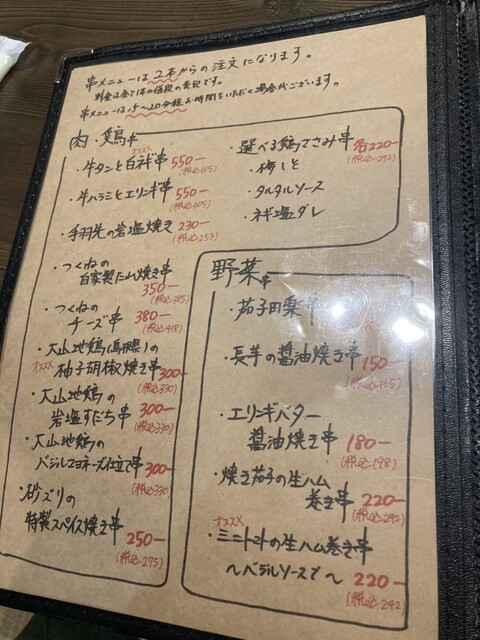 串メニューは2本からの注文になります。
料金は全て1本の値段の表記です。
串メニューは15〜20分程お時間をいただく場合がございます。
肉・鶏串
オススメ
・牛タンと白ネギ串 550-
(税込605)
・牛ハラミとエリンギ串 550-
(税込605)
・手羽先の岩塩焼き 230-
(税込253)
・つくねの
自家製たれ焼き串
350-
(税込385)
・つくねの
チーズ串 380-
(税込418)
・大山地鶏(鳥取県)の
オススメ 柚子胡椒焼き串 300-
(税込330)
・大山地鶏の
岩塩すだち串 300-
(税込330)
・大山地鶏の
バジルマヨネーズ仕立て串 300-
(税込330)
・砂ズリの
特製スパイス焼き串
250-
(税込275)
・選べる鶏ささみ串 各220-
(税込242)
・梅しそ
・タルタルソース
・ネギ塩ダレ
野菜串
・茄子田楽串
・長芋の醤油焼き串 150-
(税込165)
・エリンギバター
醤油焼き串
180-
(税込198)
・焼き茄子の生ハム
巻き串 220-
(税込242)
オススメ
・ミニトマトの生ハム巻き串
〜バジルソースで〜 220-
(税込242)